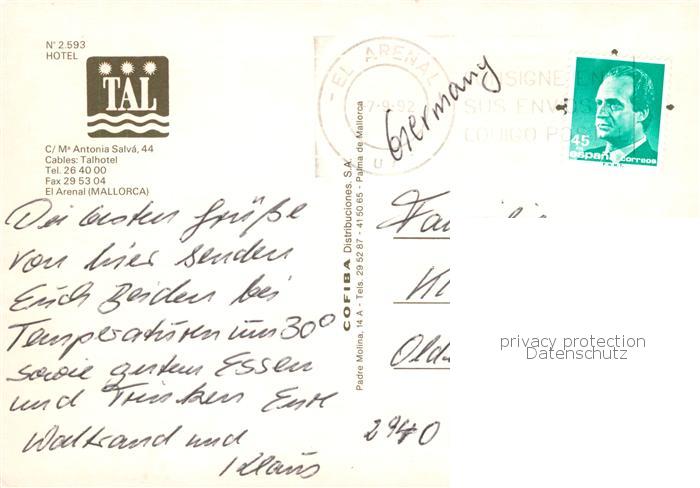 Nº 2.593
HOTEL
TAL
C/ Mª Antonia Salvá, 44
Cables: Talhotel
Tel. 26 40 00
Fax 29 53 04
El Arenal (MALLORCA)
Die besten Grüße
von hier senden
Euch Beiden bei
Temperaturen um 30°
sowie gutem Essen
und Trinken Eure
Waltraud und
Klaus
COFIBA Distribuciones, S.A.
Padre Molina, 14 A - Tels. 29 52 87 - 41 50 65 - Palma de Mallorca
EL ARENAL
-7-9-92
CONSIGNE EN
SUS ENVIOS
CODIGO POSTAL
Germany
45
españa correos
Familie
Old
2940
privacy protection
Datenschutz